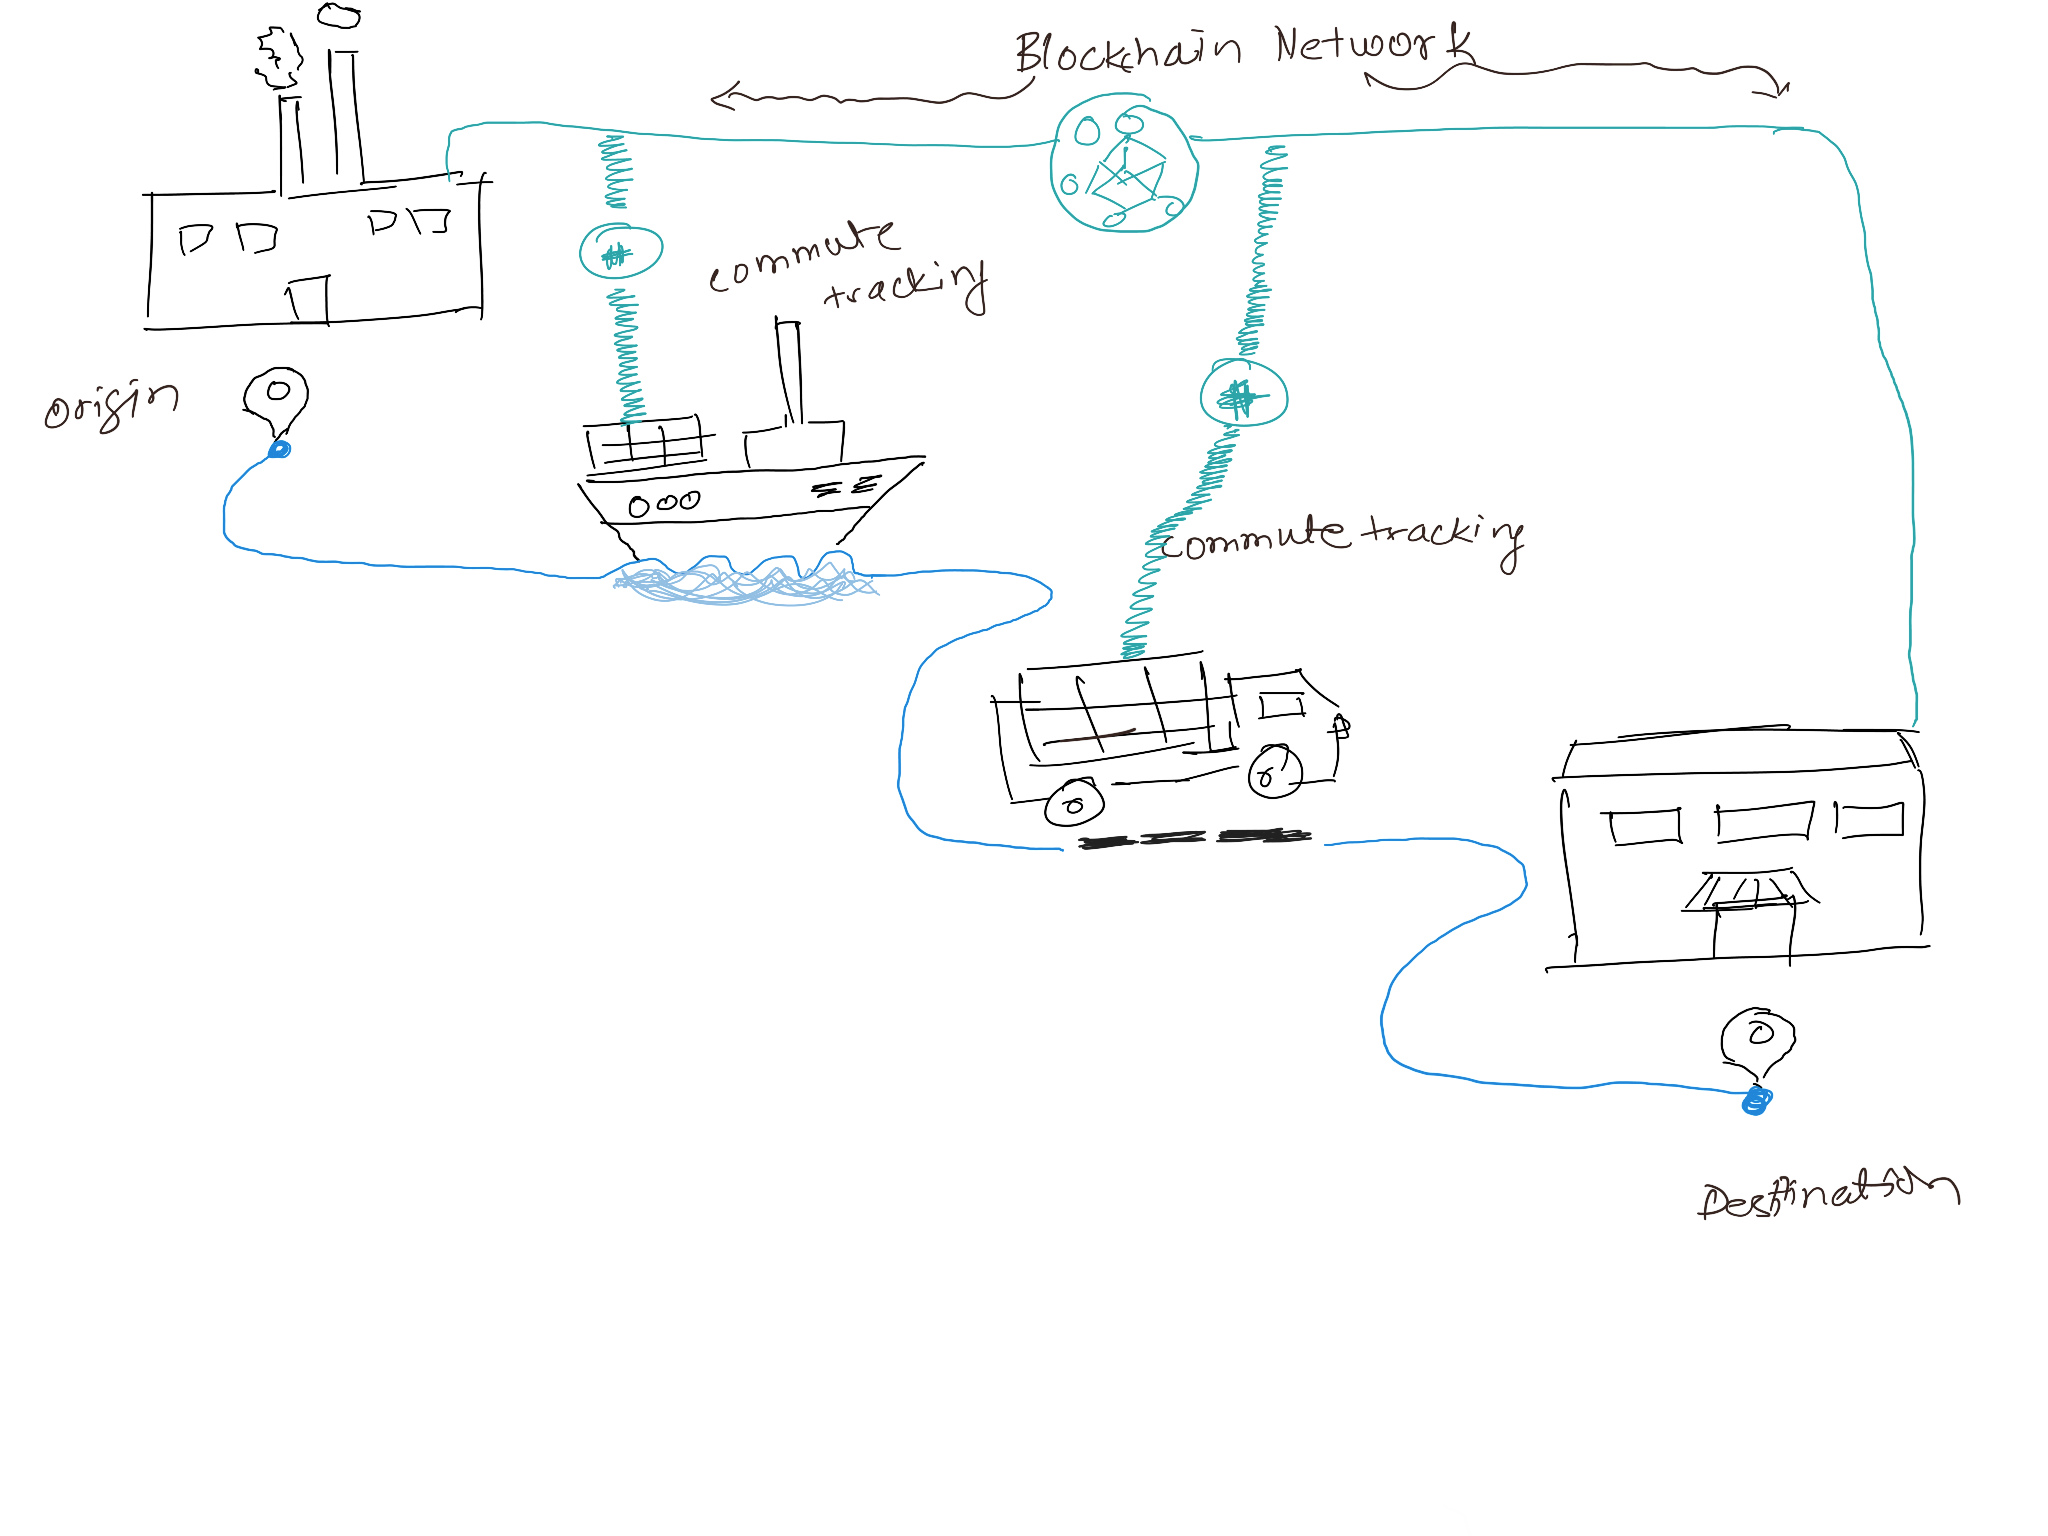 Blockchain Network
commute
tracking
origin
commute tracking
Destination